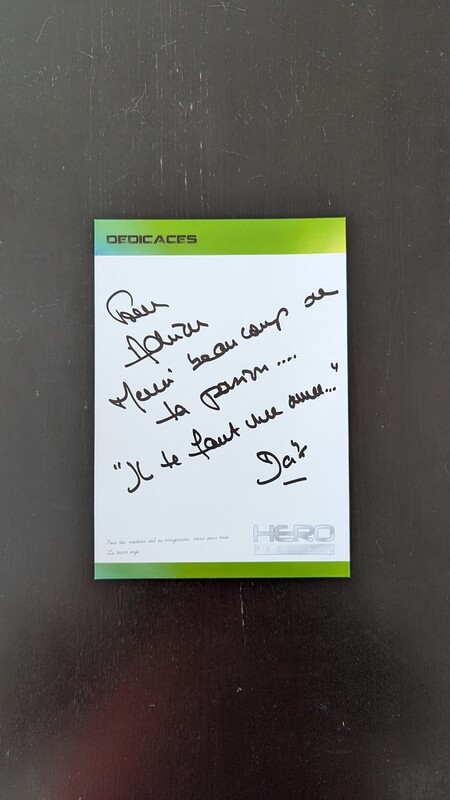 DEDICACES
Pour
Adrien
Merci beaucoup de
ta passion....
"Il te faut une arme..."
HERO